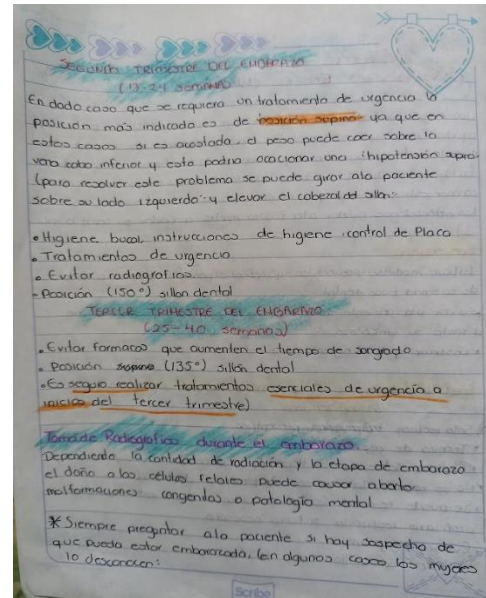 SEGUNDO TRIMESTRE DEL EMBARAZO
(13-24 semanas)
En dado caso que se requiera un tratamiento de urgencia la
posición mas indicada es de posición supina ya que en
estos casos si es acostada el peso puede caer sobre la
vena cava inferior y esta podria ocacionar una hipotensión supra
(para resolver este problema se puede girar ala paciente
sobre su lado izquierdo y elevar el cabezal del sillon:
• Higiene bucal, instrucciones de higiene control de Placa
• Tratamientos de urgencia
• Evitar radiografias
- Posición (150°) sillon dental
TERCER TRIMESTRE DEL EMBARAZO
(25-40 semanas)
• Evitar farmacos que aumenten el tiempo de sangrado
• Posición (135°) sillón dental
• Es seguro realizar tratamientos esenciales de urgencia a
inicios del tercer trimestre)
Toma de Radiografias durante el embarazo.
Dependiendo la cantidad de radiación y la etapa de embarazo
el daño a las células fetales puede causar aborto
malformaciones congenitas o patologia mental
* Siempre preguntar ala paciente si hay sospecha de
que pueda estar embarazada, (en algunos casos las mujeres
lo desconocen:
Scribe